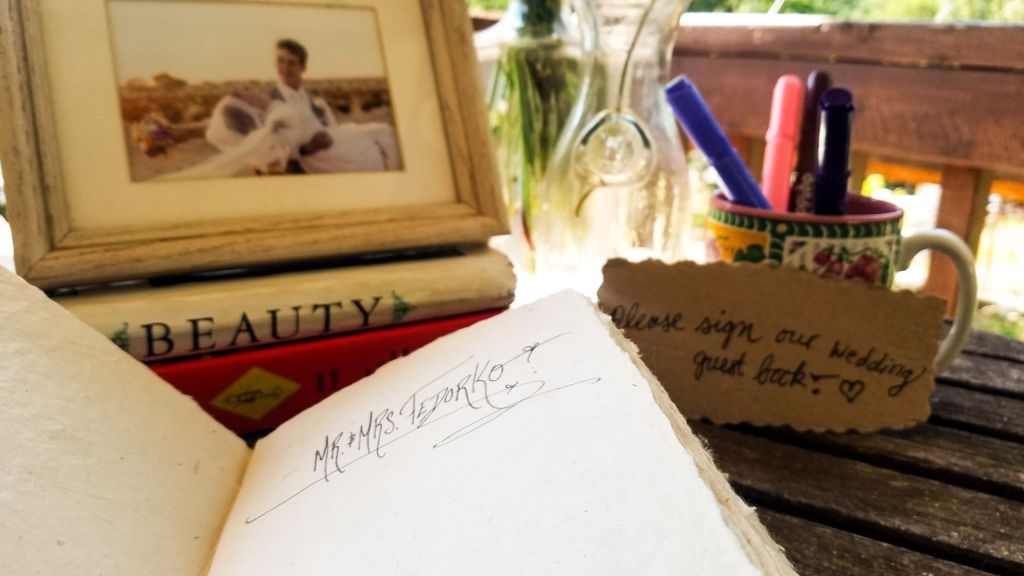 BEAUTY
MR. & MRS. FEDORKO
Please sign our wedding
guest book